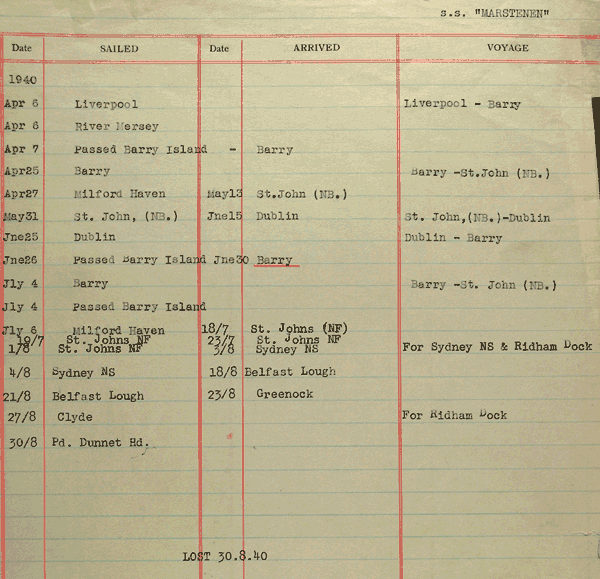 s.s. "MARSTENEN"
Date SAILED Date ARRIVED VOYAGE
1940
Apr 6 Liverpool Liverpool - Barry
Apr 6 River Mersey
Apr 7 Passed Barry Island - Barry
Apr25 Barry Barry -St.John (NB.)
Apr27 Milford Haven May13 St.John (NB.)
May31 St. John, (NB.) Jne15 Dublin St. John,(NB.)-Dublin
Jne25 Dublin Dublin - Barry
Jne26 Passed Barry Island Jne30 Barry
Jly 4 Barry Barry -St. John (NB.)
Jly 4 Passed Barry Island
Jly 6 Milford Haven 18/7 St. Johns (NF)
19/7 St. Johns NF 23/7 St. Johns NF
1/8 St. Johns NF 3/8 Sydney NS For Sydney NS & Ridham Dock
4/8 Sydney NS 18/8 Belfast Lough
21/8 Belfast Lough 23/8 Greenock
27/8 Clyde For Ridham Dock
30/8 Pd. Dunnet Hd.
LOST 30.8.40